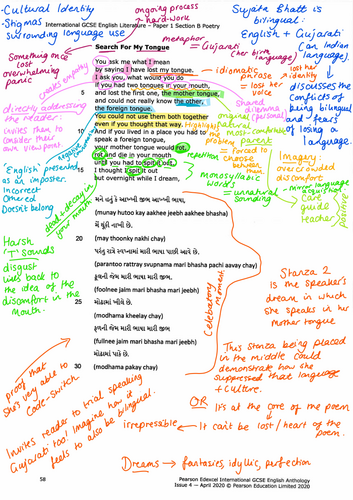 -Cultural Identity
-Stigmas surrounding language use
International GCSE English Literature – Paper 1 Section B Poetry
ongoing process
↑ hard-work
Sujata Bhatt is bilingual:
English + Gujarati
(her birth language)
(an Indian language).
↳ discusses the conflicts of being bilingual and fears of losing a language.
metaphor
= Gujarati
Search For My Tongue
You ask me what I mean
by saying I have lost my tongue.
I ask you, what would you do
if you had two tongues in your mouth,
5 and lost the first one, the mother tongue,
and could not really know the other,
the foreign tongue.
You could not use them both together
even if you thought that way.
10 And if you lived in a place you had to
speak a foreign tongue,
your mother tongue would rot,
rot and die in your mouth
until you had to spit it out.
15 I thought I spit it out
but overnight while I dream,
Something once lost → overwhelming panic
evokes empathy
directly addressing the reader
↳ invites them to consider their own viewpoint
↳ 'English' presented as an imposter.
Incorrect
Othered
Doesn't belong
negative connotations
dead + decay in your mouth
→ idiomatic phrase
↳ lost her identity
↳ lost her voice
Shared dilemma
original (personal)
the most comfortable parent
= forced to choose between them
repetition
monosyllabic words
= unnatural sounding
Imagery:
↳ overcrowded
↳ discomfort
→ mirror language acquisition
care
guide
teacher
positive
મને હતું કે આખ્ખી જીભ આખ્ખી ભાષા,
(munay hutoo kay aakhee jeebh aakhee bhasha)
મેં થૂંકી નાખી છે.
20 (may thoonky nakhi chay)
પરંતુ રાત્રે સ્વપ્નામાં મારી ભાષા પાછી આવે છે.
(parantoo rattray svupnama mari bhasha pachi aavay chay)
ફુલની જેમ મારી ભાષા મારી જીભ
(foolnee jaim mari bhasha mari jeebh)
25 મોઢામાં ખીલે છે.
(modhama kheelay chay)
ફળની જેમ મારી ભાષા મારી જીભ
(fullnee jaim mari bhasha mari jeebh)
મોઢામાં પાકે છે.
30 (modhama pakay chay)
Harsh 'T' sounds
↓
disgust
links back to the idea of the discomfort in the mouth.
Celebratory moment
Stanza 2 is the speaker's dream in which she speaks in her mother tongue
This stanza being placed in the middle could demonstrate how she suppressed that language + culture.
OR → It's at the core of the poem
↳ It can't be lost / heart of the poem.
irrepressible
proof that she's very able to Code-Switch
Invites reader to trial speaking Gujarati too! Imagine how it feels to also be bilingual.
Dreams → fantasies, idyllic, perfection
58
Pearson Edexcel International GCSE English Anthology
Issue 4 – April 2020 © Pearson Education Limited 2020